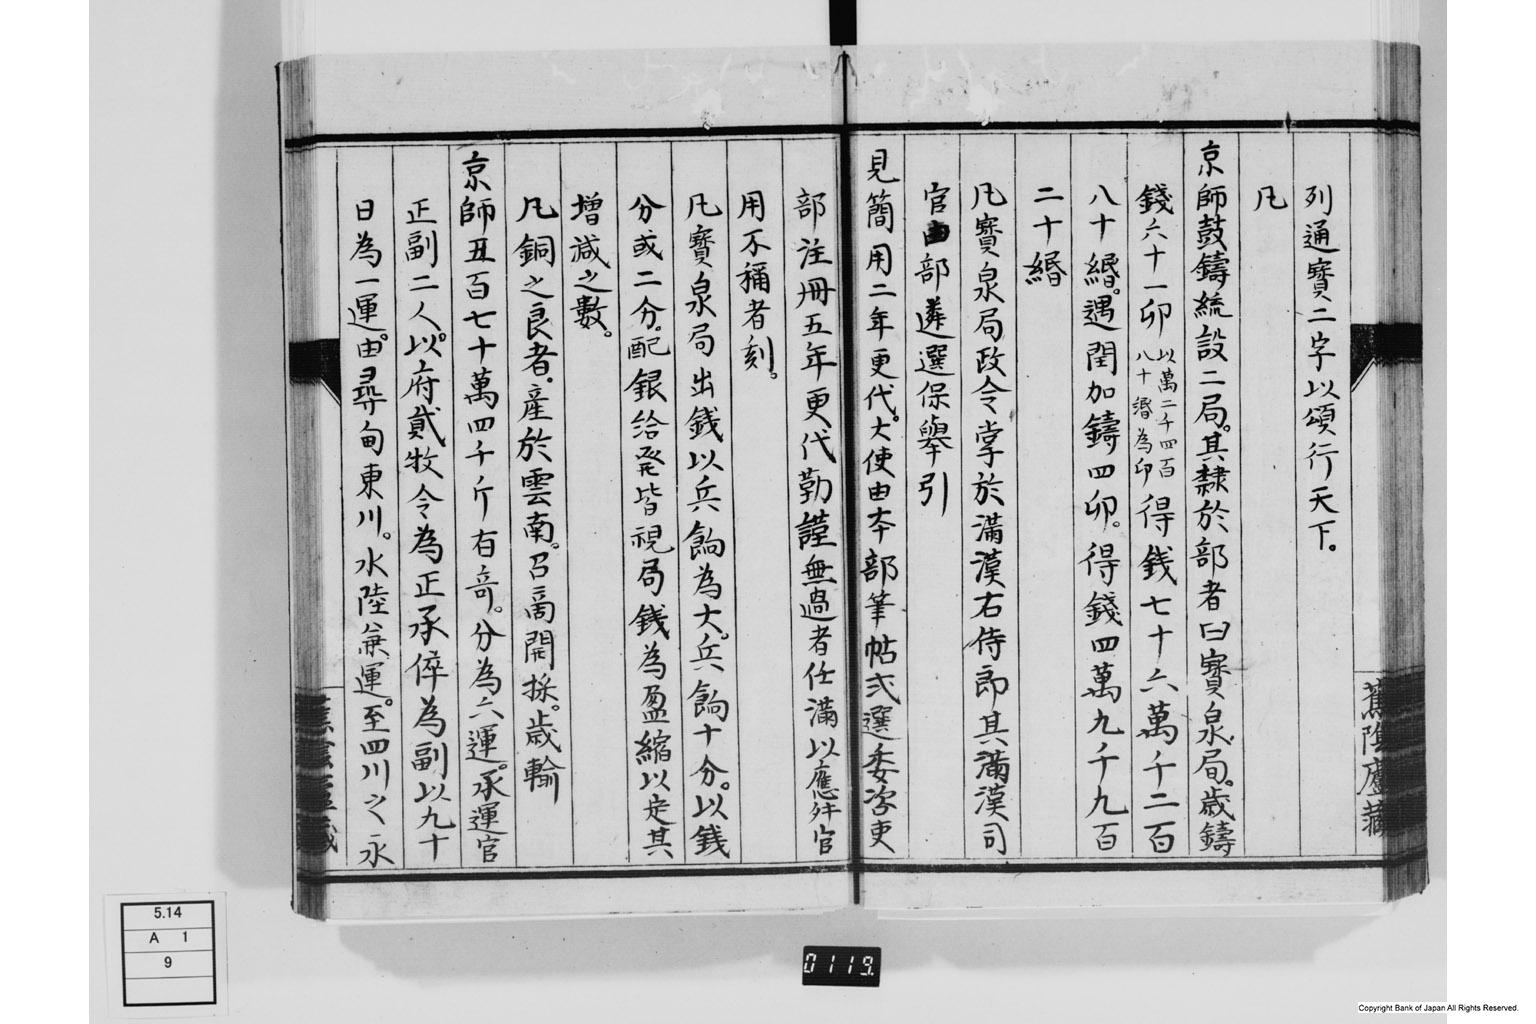 列通寶二字以頒行天下。
凡
京師鼓鑄統設二局。其隸於部者曰寶泉局。歲鑄
錢六十一卯以萬二千四百八十緡為卯得錢七十六萬千二百
八十緡。遇閏加鑄四卯。得錢四萬九千九百
二十緡
凡寶泉局政令掌於滿漢右侍郎其滿漢司
官由部遴選保舉引
見簡用二年更代。大使由本部筆帖式選委咨吏
部注冊五年更代勤謹無過者任滿以應陞官
用不稱者刻。
凡寶泉局出錢以兵餉為大。兵餉十分。以錢
分或二分。配銀給發皆視局錢為盈縮以定其
增減之數。
凡銅之良者。產於雲南。召商開採。歲輸
京師五百七十萬四千斤有奇。分為六運。承運官
正副二人。以府貳牧令為正丞倅為副以九十
日為一運。由尋甸東川。水陸兼運。至四川之永
蕉陰廬藏
5.14
A 1
9
0119.
Copyright Bank of Japan All Rights Reserved.